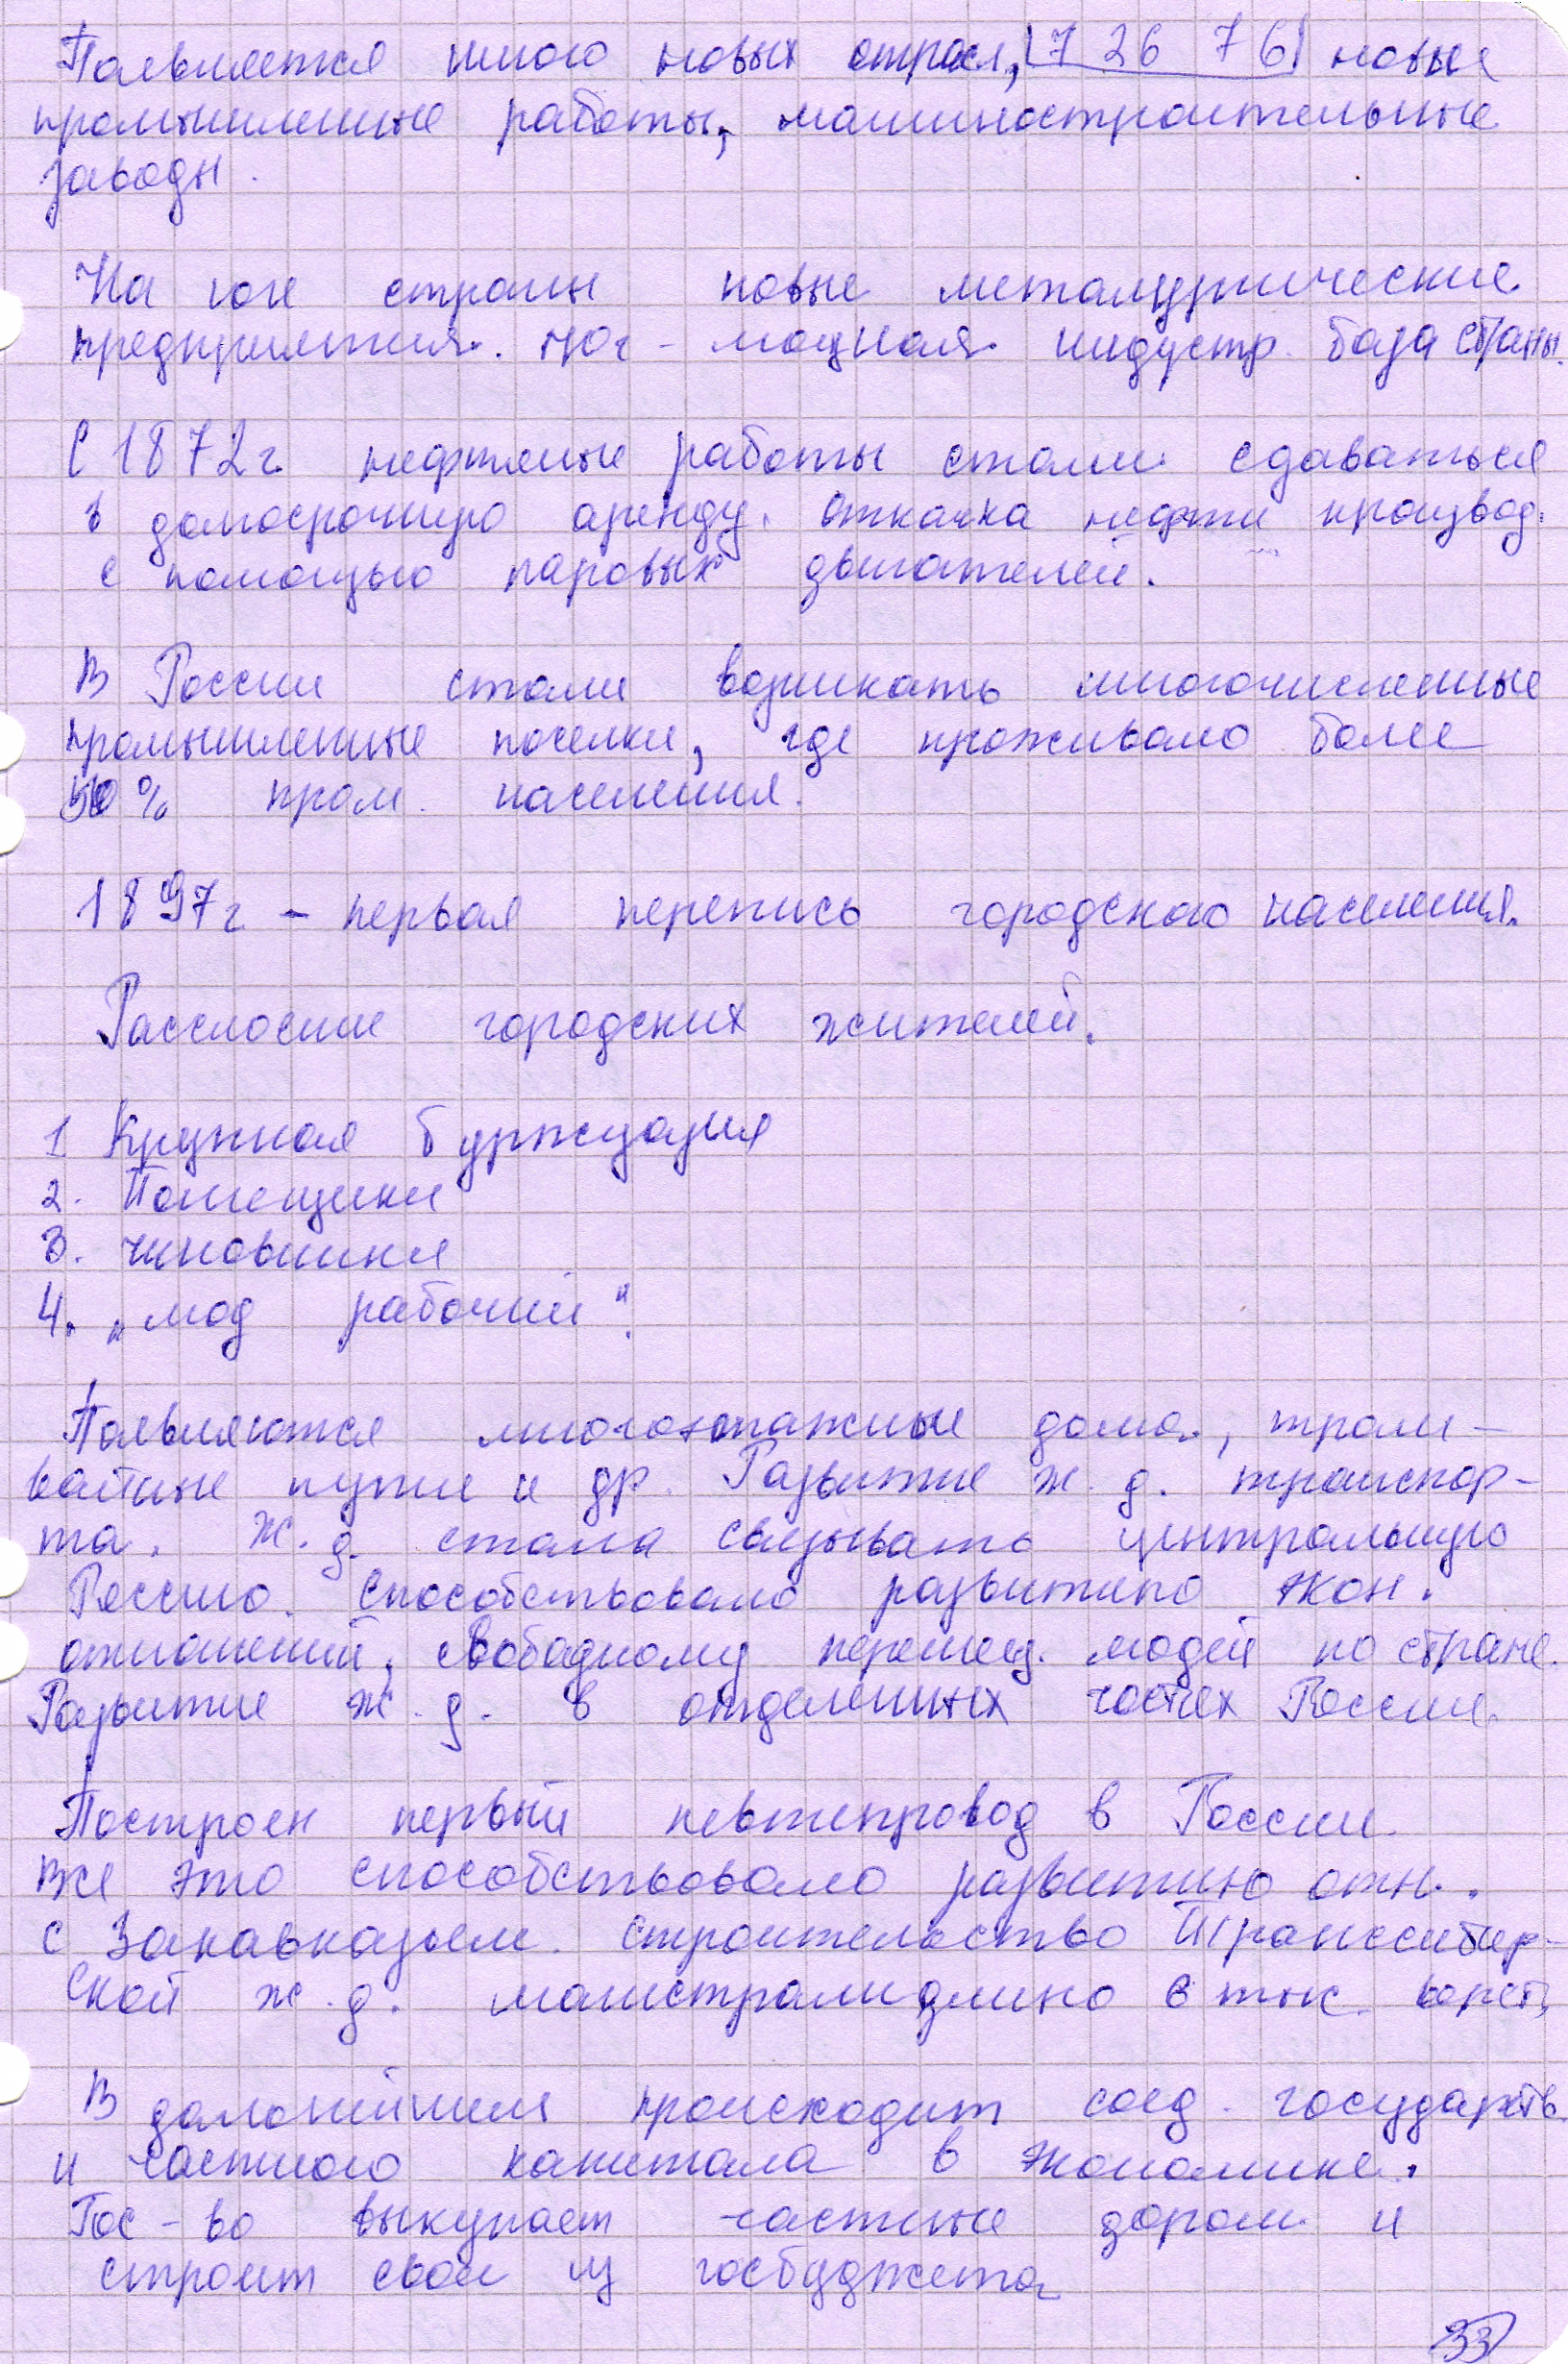 Появляется много новых отрасл, 7 26 76 новые
промышленные работы, машиностроительные
заводы.
На юге страны новые металургические
предприятия. Юг - мощная индустр. база страны.
С 1872 г. нефтяные работы стали сдаваться
в долгосрочную аренду. Откачка нефти производ.
с помощью паровых двигателей.
В России стали возникать многочисленные
промышленные поселки, где проживало более
50% пром. населения.
1897 г. - первая перепись городского населения.
Расслоение городских жителей.
1 Крупная буржуазия
2. Помещики
3. чиновники
4. „мод рабочий“.
Появляются многоэтажные дома, трам-
вайные пути и др. Развитие ж. д. транспор-
та. Ж. д. стала связывать центральную
Россию. Способствовало развитию экон.
отношений, свободному перемещ. людей по стране.
Развитие ж. д. в отделённых частях России.
Построен первый невтепровод в России.
Все это способствовало развитию отн.
с Закавказьем. Строительство Транссибир-
ской ж. д. магистрали длиною в тыс. верст,
В дальнейшем происходит соед. государств.
и частного капитала в экономике.
Гос-во выкупает частные дороги и
строит свои из госбюджета
33